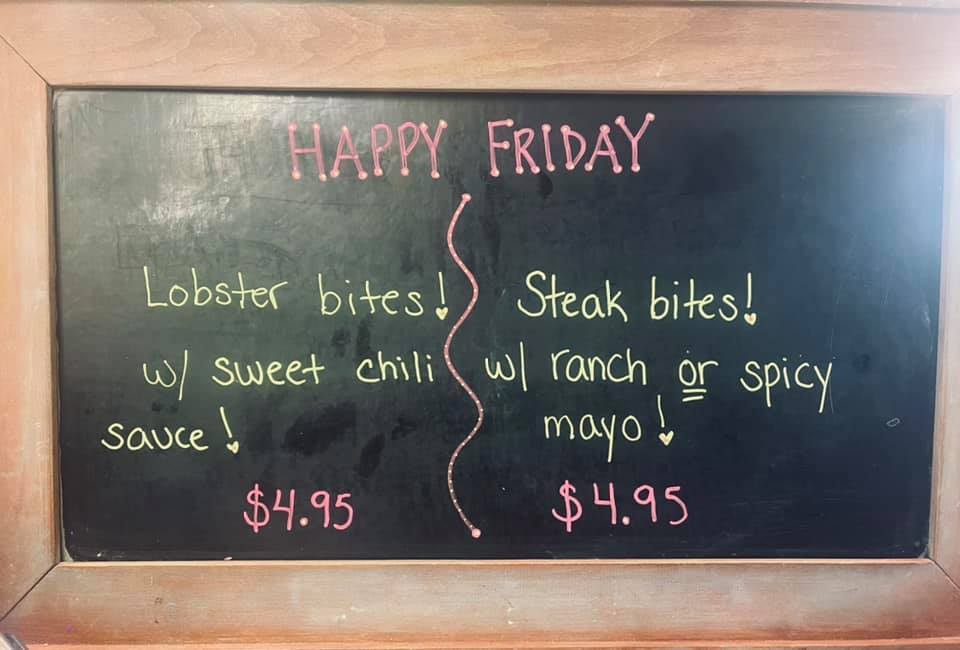 HAPPY FRIDAY
Lobster bites!
w/ sweet chili
sauce!
$4.95
Steak bites!
w/ ranch or spicy
mayo!
$4.95